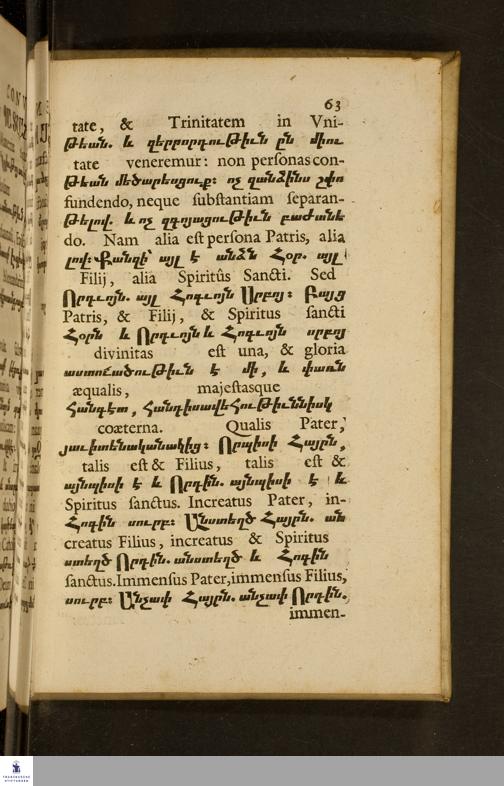 63
tate, & Trinitatem in Vni-
թեան. և զերրորդութիւն ըն միու
tate veneremur: non personas con-
թեան մեծարեսցուք: ոչ զանձինս շփո
fundendo, neque substantiam separan-
թելով. և ոչ զգոյացութիւն բաժանե
do. Nam alia est persona Patris, alia
լով: Քանզի այլ է անձն Հօր. այլ
Filij, alia Spiritûs Sancti. Sed
Որդւոյն. այլ Հոգւոյն Սրբոյ: Բայց
Patris, & Filij, & Spiritus sancti
Հօրն և Որդւոյն և Հոգւոյն սրբոյ
divinitas est una, & gloria
աստուածութիւն է մի, և փառն
æqualis, majestasque
Հանգէտ,
coæterna. Qualis Pater,
յաւիտենականակից: Որպիսի Հայրն,
talis est & Filius, talis est &
այնպիսի է և Որդին. այնպիսի է և
Spiritus sanctus. Increatus Pater, in-
Հոգին սուրբ: Անստեղծ Հայրն. ան
creatus Filius, increatus & Spiritus
ստեղծ Որդին. անստեղծ և Հոգին
sanctus. Immensus Pater, immensus Filius,
սուրբ: Անչափ Հայրն. անչափ Որդին.
immen-